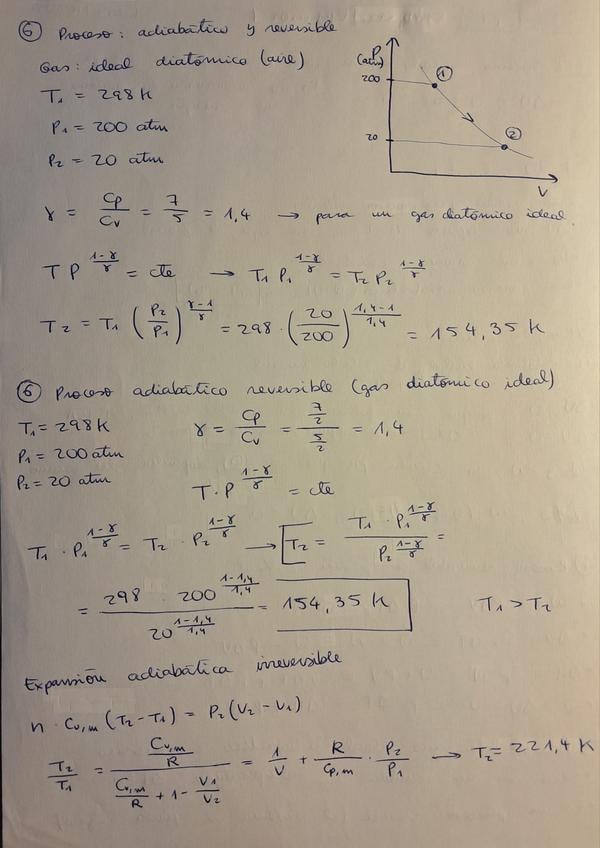 ⑥ Proceso: adiabático y reversible
Gas: ideal diatómico (aire)
T₁ = 298 K
P₁ = 200 atm
P₂ = 20 atm
P (atm)
200
①
20
②
V
γ = Cp/Cv = 7/5 = 1,4 → para un gas diatómico ideal.
T P^((1-γ)/γ) = cte → T₁ P₁^((1-γ)/γ) = T₂ P₂^((1-γ)/γ)
T₂ = T₁ (P₂/P₁)^((γ-1)/γ) = 298 · (20/200)^((1,4-1)/1,4) = 154,35 K
⑥ Proceso adiabático reversible (gas diatómico ideal)
T₁ = 298 K
P₁ = 200 atm
P₂ = 20 atm
γ = Cp/Cv = (7/2)/(5/2) = 1,4
T · P^((1-γ)/γ) = cte
T₁ · P₁^((1-γ)/γ) = T₂ · P₂^((1-γ)/γ) → T₂ = (T₁ · P₁^((1-γ)/γ))/(P₂^((1-γ)/γ)) =
= (298 · 200^((1-1,4)/1,4))/(20^((1-1,4)/1,4)) = 154,35 K
T₁ > T₂
Expansión adiabática irreversible
n · Cv,m (T₂ - T₁) = P₂ (V₂ - V₁)
T₂/T₁ = (Cv,m/R)/(Cv,m/R + 1 - V₁/V₂) = 1/V + R/Cp,m · P₂/P₁ → T₂ = 221,4 K